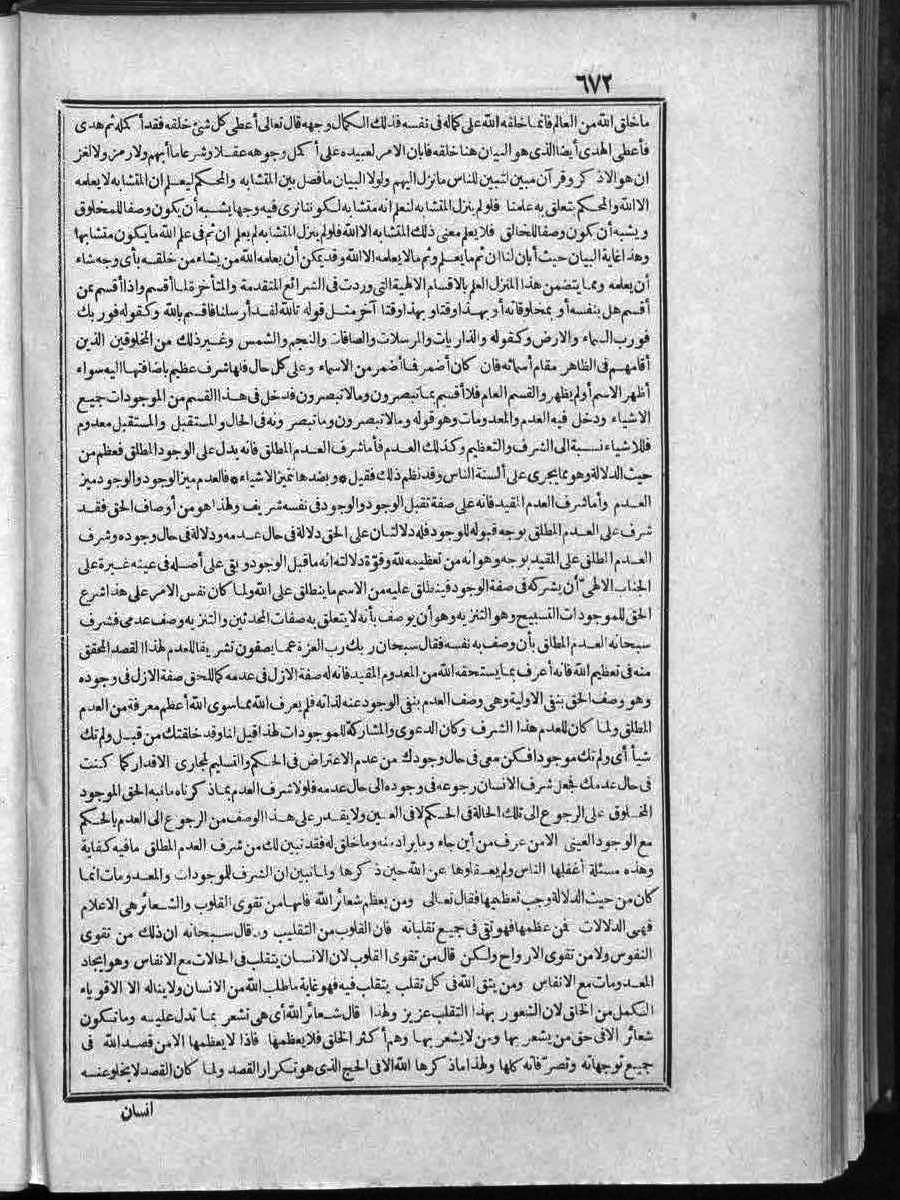 ٦٧٢
ما خلق الله من العالم فانما خلقه الله على كماله فى نفسه فذلك الكمال وجهه قال تعالى أعطى كل شئ خلقه فقد أكمله ثم هدى
فأعطى الهدى أيضا الذى هو البيان هنا خلقه فابان الامر لعبيده على أكمل وجوهه عقلا وشرعا ما أبهم ولا رمز ولا لغز
ان هو الا ذكر وقرآن مبين لتبين للناس ما نزل اليهم ولولا البيان ما فصل بين المتشابه والمحكم ليعلم ان المتشابه لا يعلمه
الا الله والمحكم يتعلق به علمنا فلو لم ينزل المتشابه لنعلم انه متشابه لكوننا نرى فيه وجها يشبه أن يكون وصفا للمخلوق
ويشبه أن يكون وصفا للخالق فلا يعلم معنى ذلك المتشابه الا الله فلو لم ينزل المتشابه لم يعلم ان ثم فى علم الله ما يكون متشابها
وهذا غاية البيان حيث أبان لنا ان ثم ما يعلم وثم ما لا يعلمه الا الله وقد يمكن أن يعلمه الله من يشاء من خلقه بأى وجه شاء
أن يعلمه ومما يتضمن هذا المنزل العلم بالاقسام الالهية التى وردت فى الشرائع المتقدمة والمتأخرة لما أقسم واذا أقسم بمن
أقسم هل بنفسه أو بمخلوقاته أو بهذا وقتا وبهذا وقتا آخر مثل قوله تالله لقد أرسلنا فاقسم بالله وكقوله فوربك
فورب السماء والارض وكقوله والذاريات والمرسلات والصافات والنجم والشمس وغير ذلك من المخلوقين الذين
أقامهم فى الظاهر مقام أسمائه فان كان أضمر فما أضمر من الاسماء وعلى كل حال فلها شرف عظيم باضافتها اليه سواء
أظهر الاسم أو لم يظهر والقسم العام فلا أقسم بما تبصرون وما لا تبصرون فدخل فى هذا القسم من الموجودات جميع
الاشياء ودخل فيه العدم والمعدومات وهو قوله وما لا تبصرون وما تبصرونه فى الحال والمستقبل والمستقبل معدوم
فللاشياء نسبة الى الشرف والتعظيم وكذلك العدم فأما شرف العدم المطلق فانه يدل على الوجود المطلق فعظم من
حيث الدلالة وهو مما يجرى على ألسنة الناس وقد نظم ذلك فقيل * وبضدها تتميز الاشياء * فالعدم ميز الوجود والوجود ميز
العدم وأما شرف العدم المقيد فانه على صفة تقبل الوجود والوجود فى نفسه شريف ولهذا هو من أوصاف الحق فقد
شرف على العدم المطلق بوجه قبوله للوجود فله دلالتان على الحق دلالة فى حال عدمه ودلالة فى حال وجوده وشرف
العدم المطلق على المقيد بوجه وهو انه من تعظيمه لله وقوة دلالته انه ما قبل الوجود وبقى على أصله فى عينه غيرة على
الجناب الالهى أن يشركه فى صفة الوجود فينطلق عليه من الاسم ما ينطلق على الله ولما كان نفس الامر على هذا شرع
الحق للموجودات التسبيح وهو التنزيه وهو أن يوصف بأنه لا يتعلق به صفات المحدثين والتنزيه وصف عدمى فشرف
سبحانه العدم المطلق بأن وصف به نفسه فقال سبحان ربك رب العزة عما يصفون تشريفا للعدم لهذا القصد المحقق
منه فى تعظيم الله فانه أعرف بما يستحقه الله من المعدوم المقيد فانه له صفة الازل فى عدمه كما للحق صفة الازل فى وجوده
وهو وصف الحق بنفى الاولية وهى وصف العدم بنفى الوجود عنه لذاته فلم يعرف الله مما سوى الله أعظم معرفة من العدم
المطلق ولما كان للعدم هذا الشرف وكان الدعوى والمشاركة للموجودات لهذا قيل لنا وقد خلقتك من قبل ولم تك
شيأ أى ولم تك موجودا فكن معى فى حال وجودك من عدم الاعتراض فى الحكم والتسليم لمجارى الاقدار كما كنت
فى حال عدمك فجعل شرف الانسان رجوعه فى وجوده الى حال عدمه فلولا شرف العدم بما ذكرناه ما نبه الحق الموجود
المخلوق على الرجوع الى تلك الحالة فى الحكم لا فى العين ولا يقدر على هذا الوصف من الرجوع الى العدم بالحكم
مع الوجود العينى الا من عرف من أين جاء وما يراد منه وما خلق له فقد تبين لك من شرف العدم المطلق ما فيه كفاية
وهذه مسئلة أغفلها الناس ولم يعقلوها عن الله حين ذكرها ولما تبين ان الشرف للموجودات والمعدومات انما
كان من حيث الدلالة وجب تعظيمها فقال تعالى ومن يعظم شعائر الله فانها من تقوى القلوب والشعائر هى الاعلام
فهى الدلالات فمن عظمها فهو تقى فى جميع تقلباته فان القلوب من التقليب وما قال سبحانه ان ذلك من تقوى
النفوس ولا من تقوى الارواح ولكن قال من تقوى القلوب لان الانسان يتقلب فى الحالات مع الانفاس وهو ايجاد
المعدومات مع الانفاس ومن يتق الله فى كل تقلب يتقلب فيه فهو غاية ما طلب الله من الانسان ولا يناله الا الاقوياء
الكمل من الخلق لان الشعور بهذا التقلب عزيز ولهذا قال شعائر الله أى هى تشعر بما تدل عليه وما تكون
شعائر الا فى حق من يشعر بها ومن لا يشعر بها وهم أكثر الخلق فلا يعظمها فاذا لا يعظمها الا من قصد الله فى
جميع توجهاته وتصرفاته كلها ولهذا ما ذكرها الله الا فى الحج الذى هو تكرار القصد ولما كان القصد لا يخلو عنه
انسان